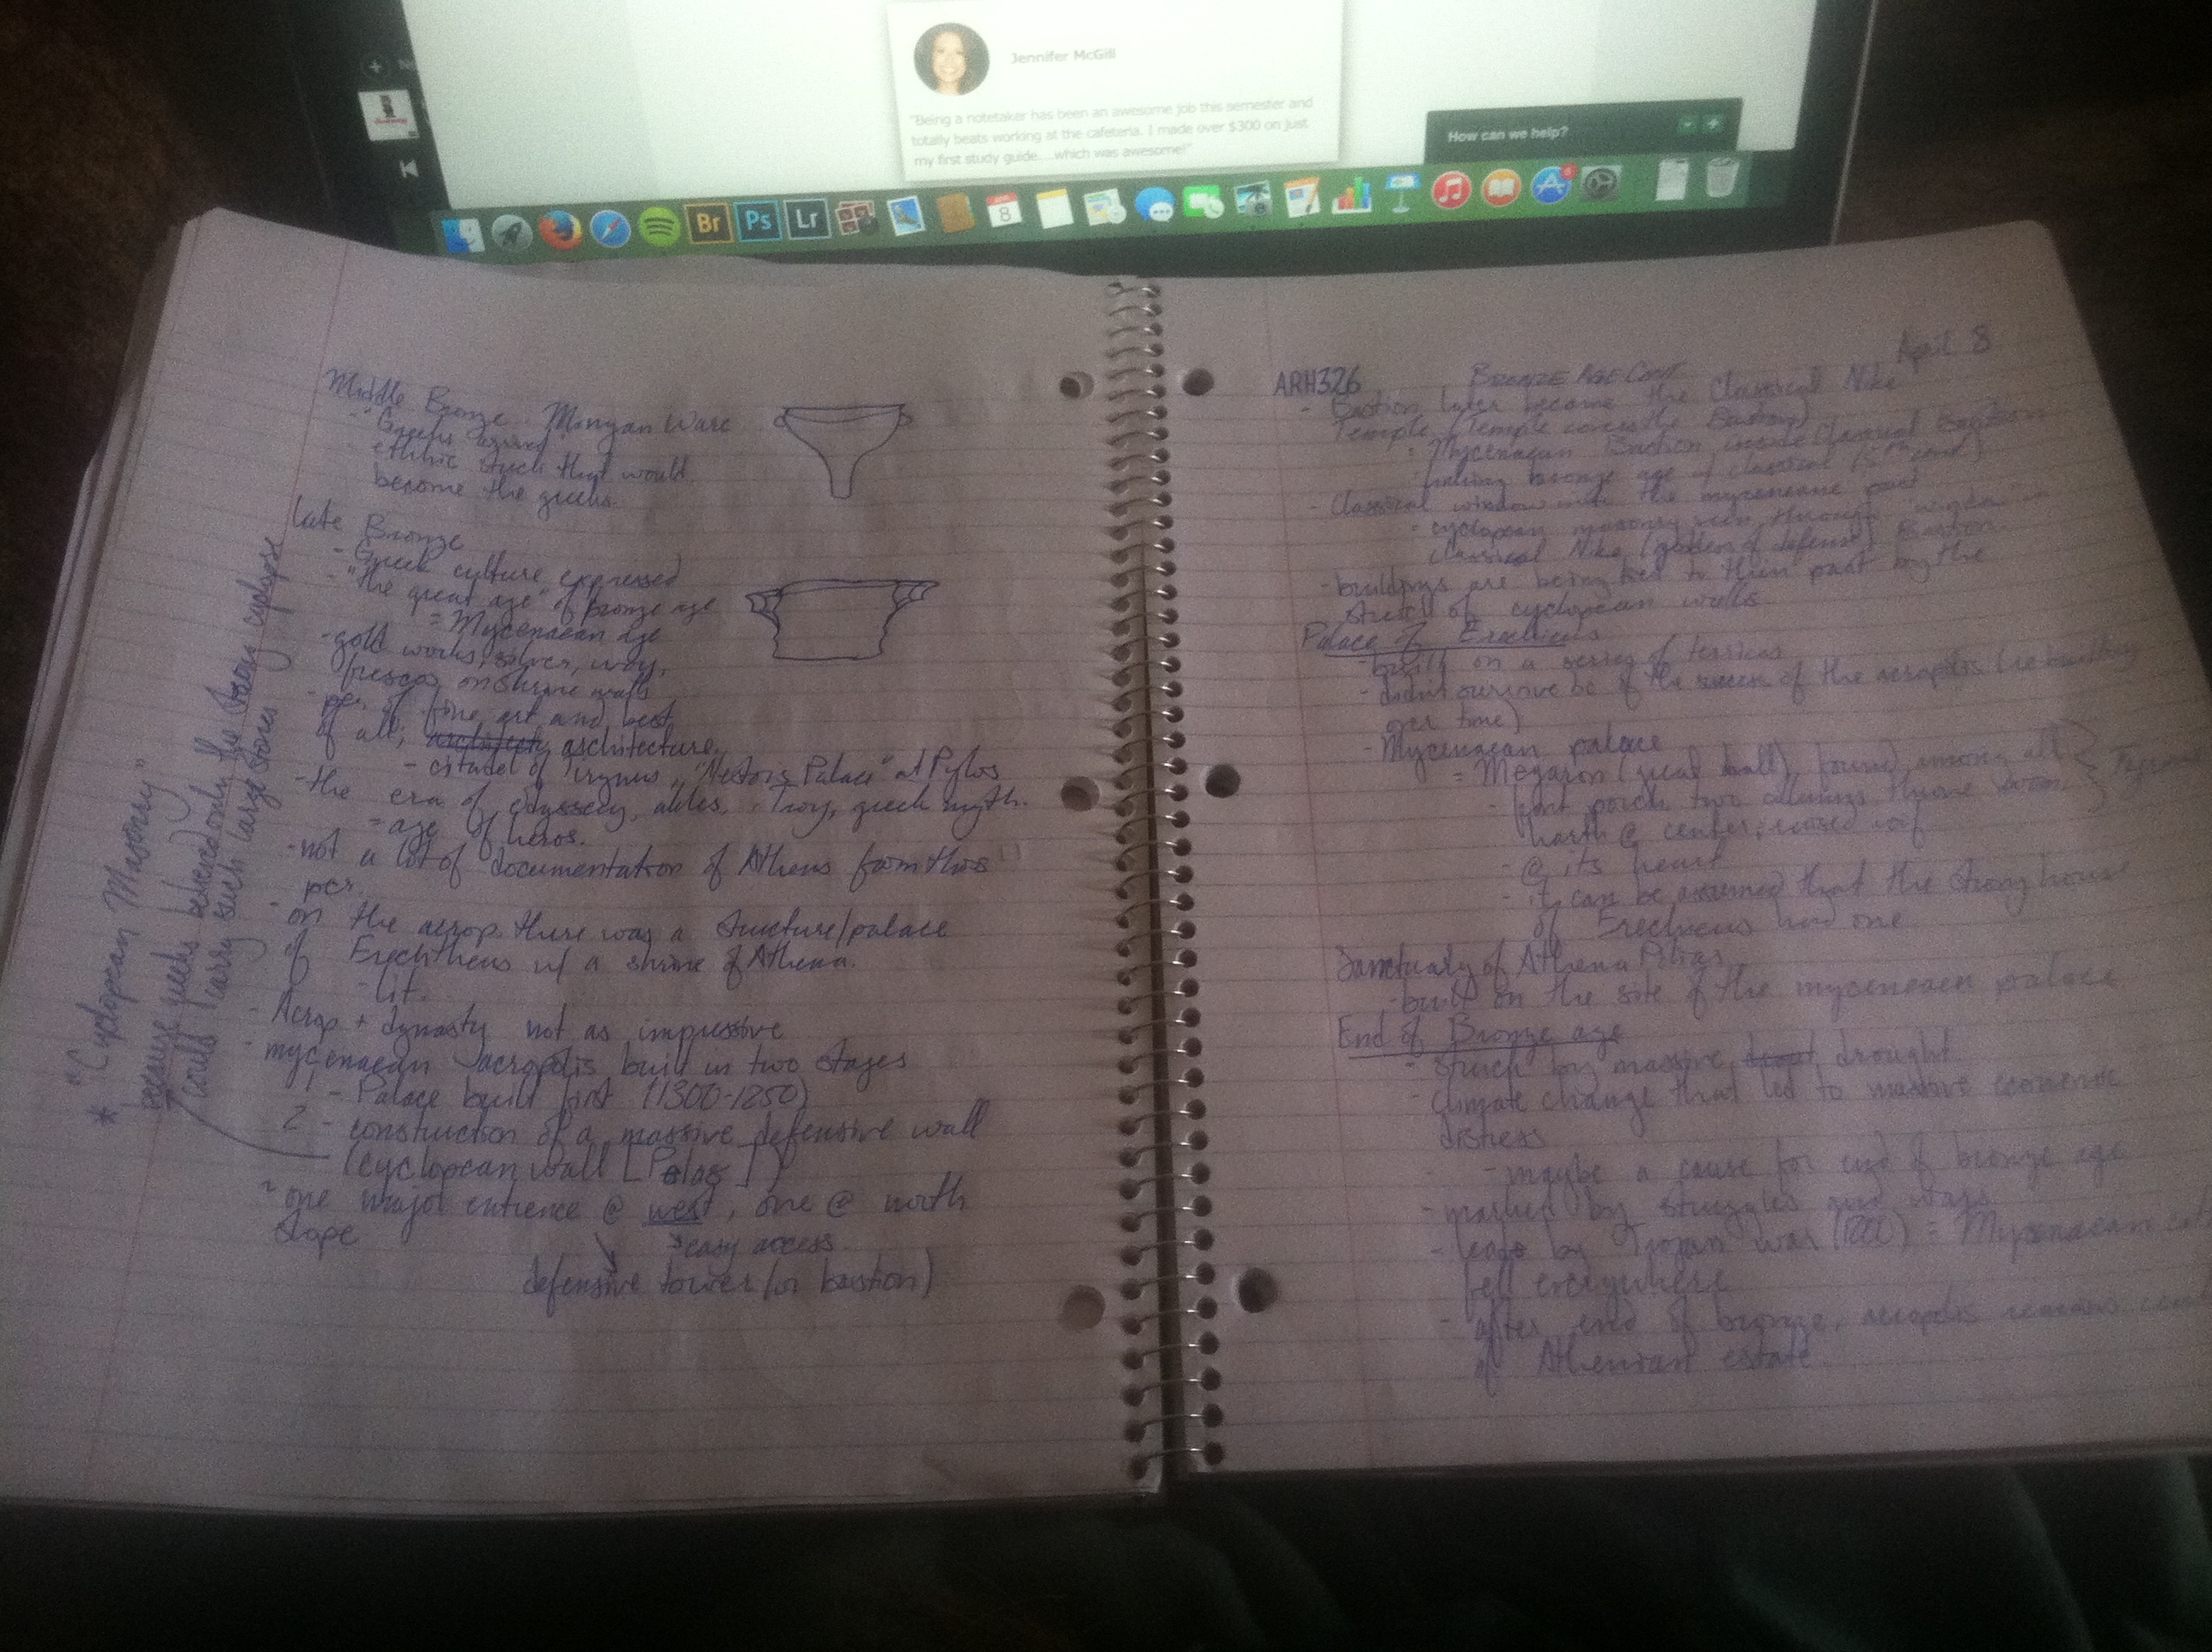 Jennifer McGill
"Being a notetaker has been an awesome job this semester and
totally beats working at the cafeteria. I made over $300 on just
my first study guide....which was awesome!"
How can we help?
Br
Ps
Lr
8
Middle Bronze Minyan Ware
- "Greeks arrive"
ethnic stock that would
become the greeks.
Late Bronze
- Greek culture expressed
- "the great age" of bronze age
= Mycenaean age
- gold works, silver, ivory,
frescos on shrine walls
- per. of fine art and best
of all, architecture.
- citadel of Tirynus, "Nestors Palace" at Pylos
- the era of odyssey, Troy, greek myth.
= age of heros.
- not a lot of documentation of Athens from this
per.
- on the acrop. there was a structure/palace
of Erechtheus w/ a shrine of Athena.
- lit.
- Acrop + dynasty not as impressive
- mycenaean acropolis built in two stages
1 - Palace built first (1300-1250)
2 - construction of a massive defensive wall
(cyclopean wall
- one major entrence @ west, one @ north
slope
easy access
defensive tower (or bastion)
* "Cyclopean Masonry"
because greeks believed only the strong cyclopse
could carry such large stones
ARH326
BRONZE AGE CONT
April 8
- Bastion later become the Classical Nike
Temple (Temple covers the Bastion)
- Mycenaean Bastion inside Classical Bastion
linking bronze age & classical (5th cent)
- Classical window into the mycenean past
- cyclopean masonry seen through window in
classical Nike (goddess of defense) Bastion
- buildings are being tied to their past by the
of cyclopean walls
Palace of
- built on a series of
- didnt survive bc of the of the acropolis (rebuilding
over time)
- Mycenaean palace
= Megaron (great hall), found among all
- front porch, two columns, throne room,
harth @ center, raised roof
- @ its heart
- it can be assumed that the strong house
of had one
Sanctuary of Athena Polias
- built on the site of the mycenaean palace
End of Bronze age
- struck by massive drought
- climate change that led to massive economic
distress
- maybe a cause for end of bronze age
- marked by struggles and wars
- by Trojan war = Mycenaean
fell everywhere
- after end of bronze, acropolis remains
of Athenian estate